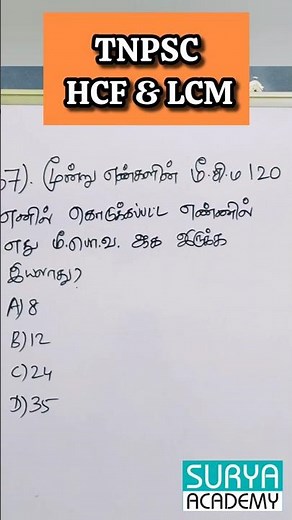 TNPSC
HCF & LCM
67). மூன்று எண்களின் மீ.சி.ம 120
எனில் கொடுக்கப்பட்ட எண்ணில்
எது மீ.பொ.வ. ஆக இருக்க
இயலாது?
A) 8
B) 12
C) 24
D) 35
SURYA
ACADEMY